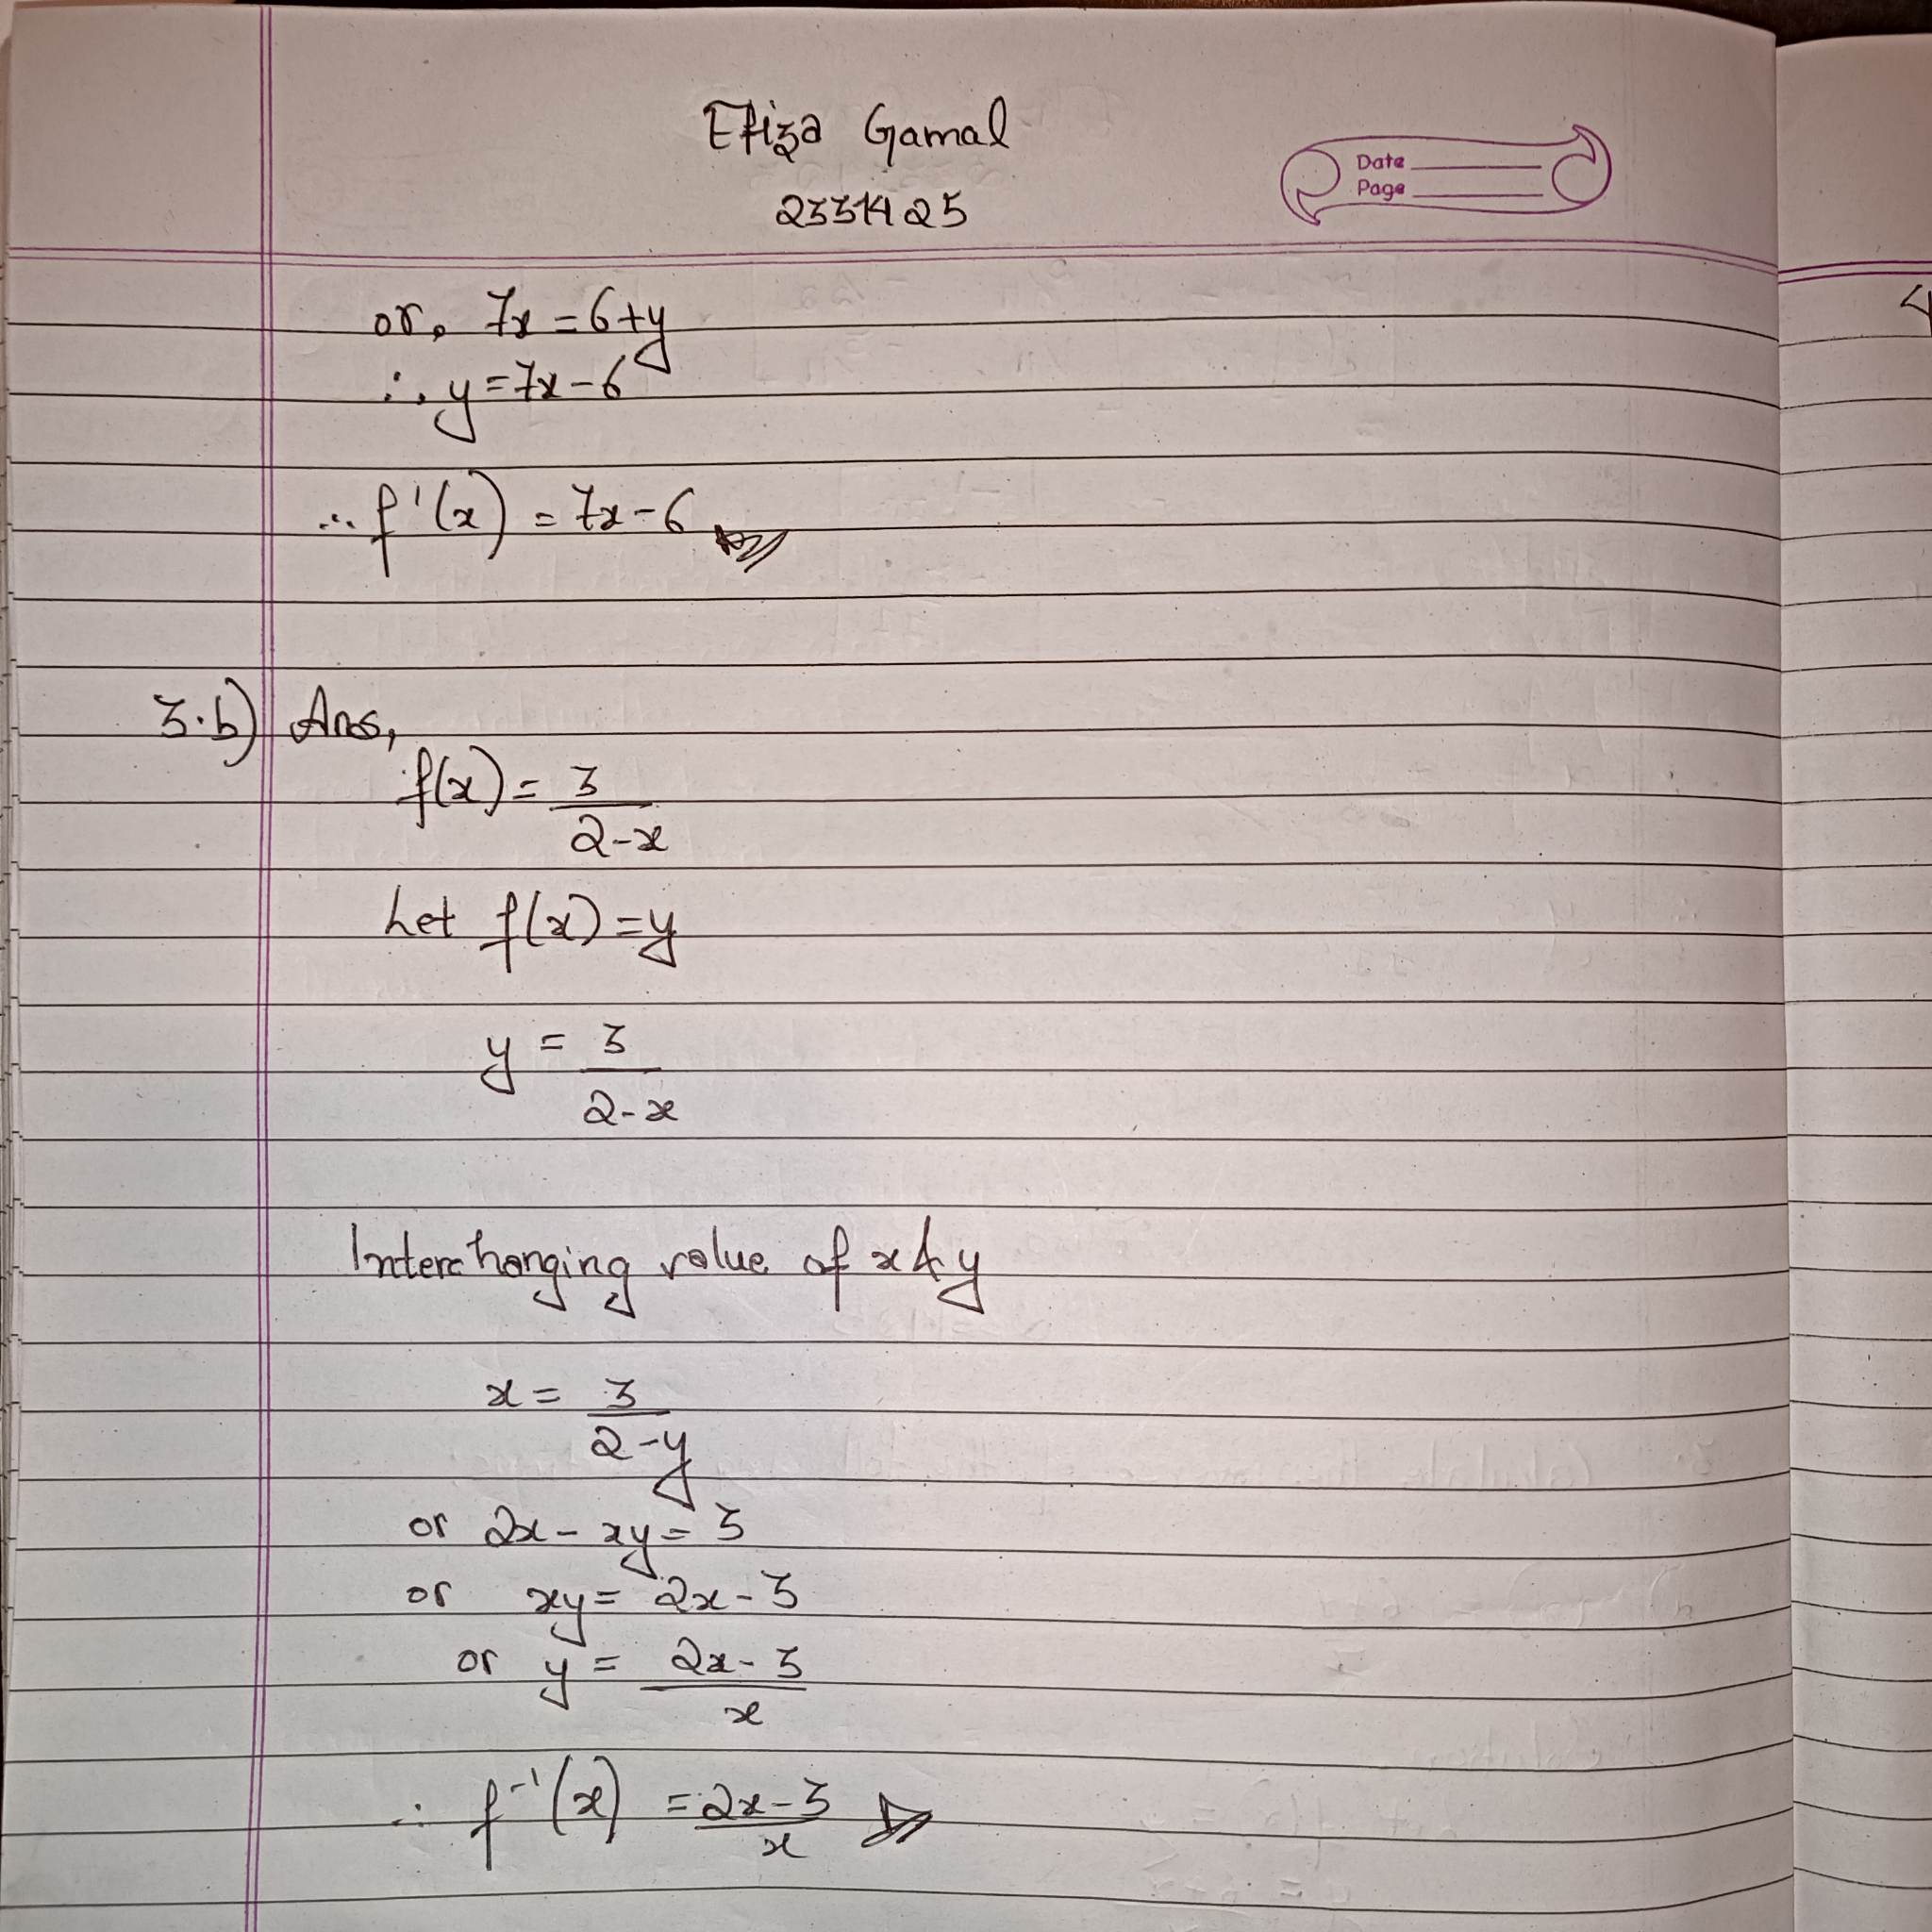 Efiza Gamal
2331425
Date
Page
or, 7x = 6+y
∴ y = 7x - 6
∴ f'(x) = 7x - 6
3.b) Ans,
f(x) = 3
2-x
Let f(x) = y
y = 3
2-x
Interchanging value of x & y
x = 3
2-y
or 2x - xy = 3
or xy = 2x - 3
or y = 2x - 3
x
∴ f⁻¹(x) = 2x - 3
x